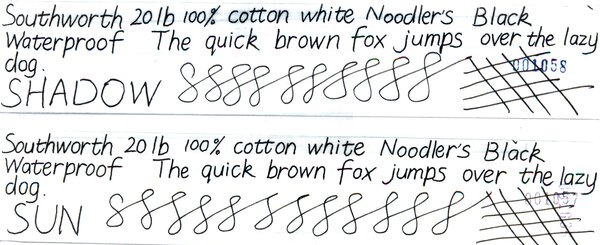 Southworth 20 lb 100% cotton white Noodler's Black
Waterproof The quick brown fox jumps over the lazy
dog.
001058
SHADOW
Southworth 20 lb 100% cotton white Noodler's Black
Waterproof The quick brown fox jumps over the lazy
dog.
001057
SUN